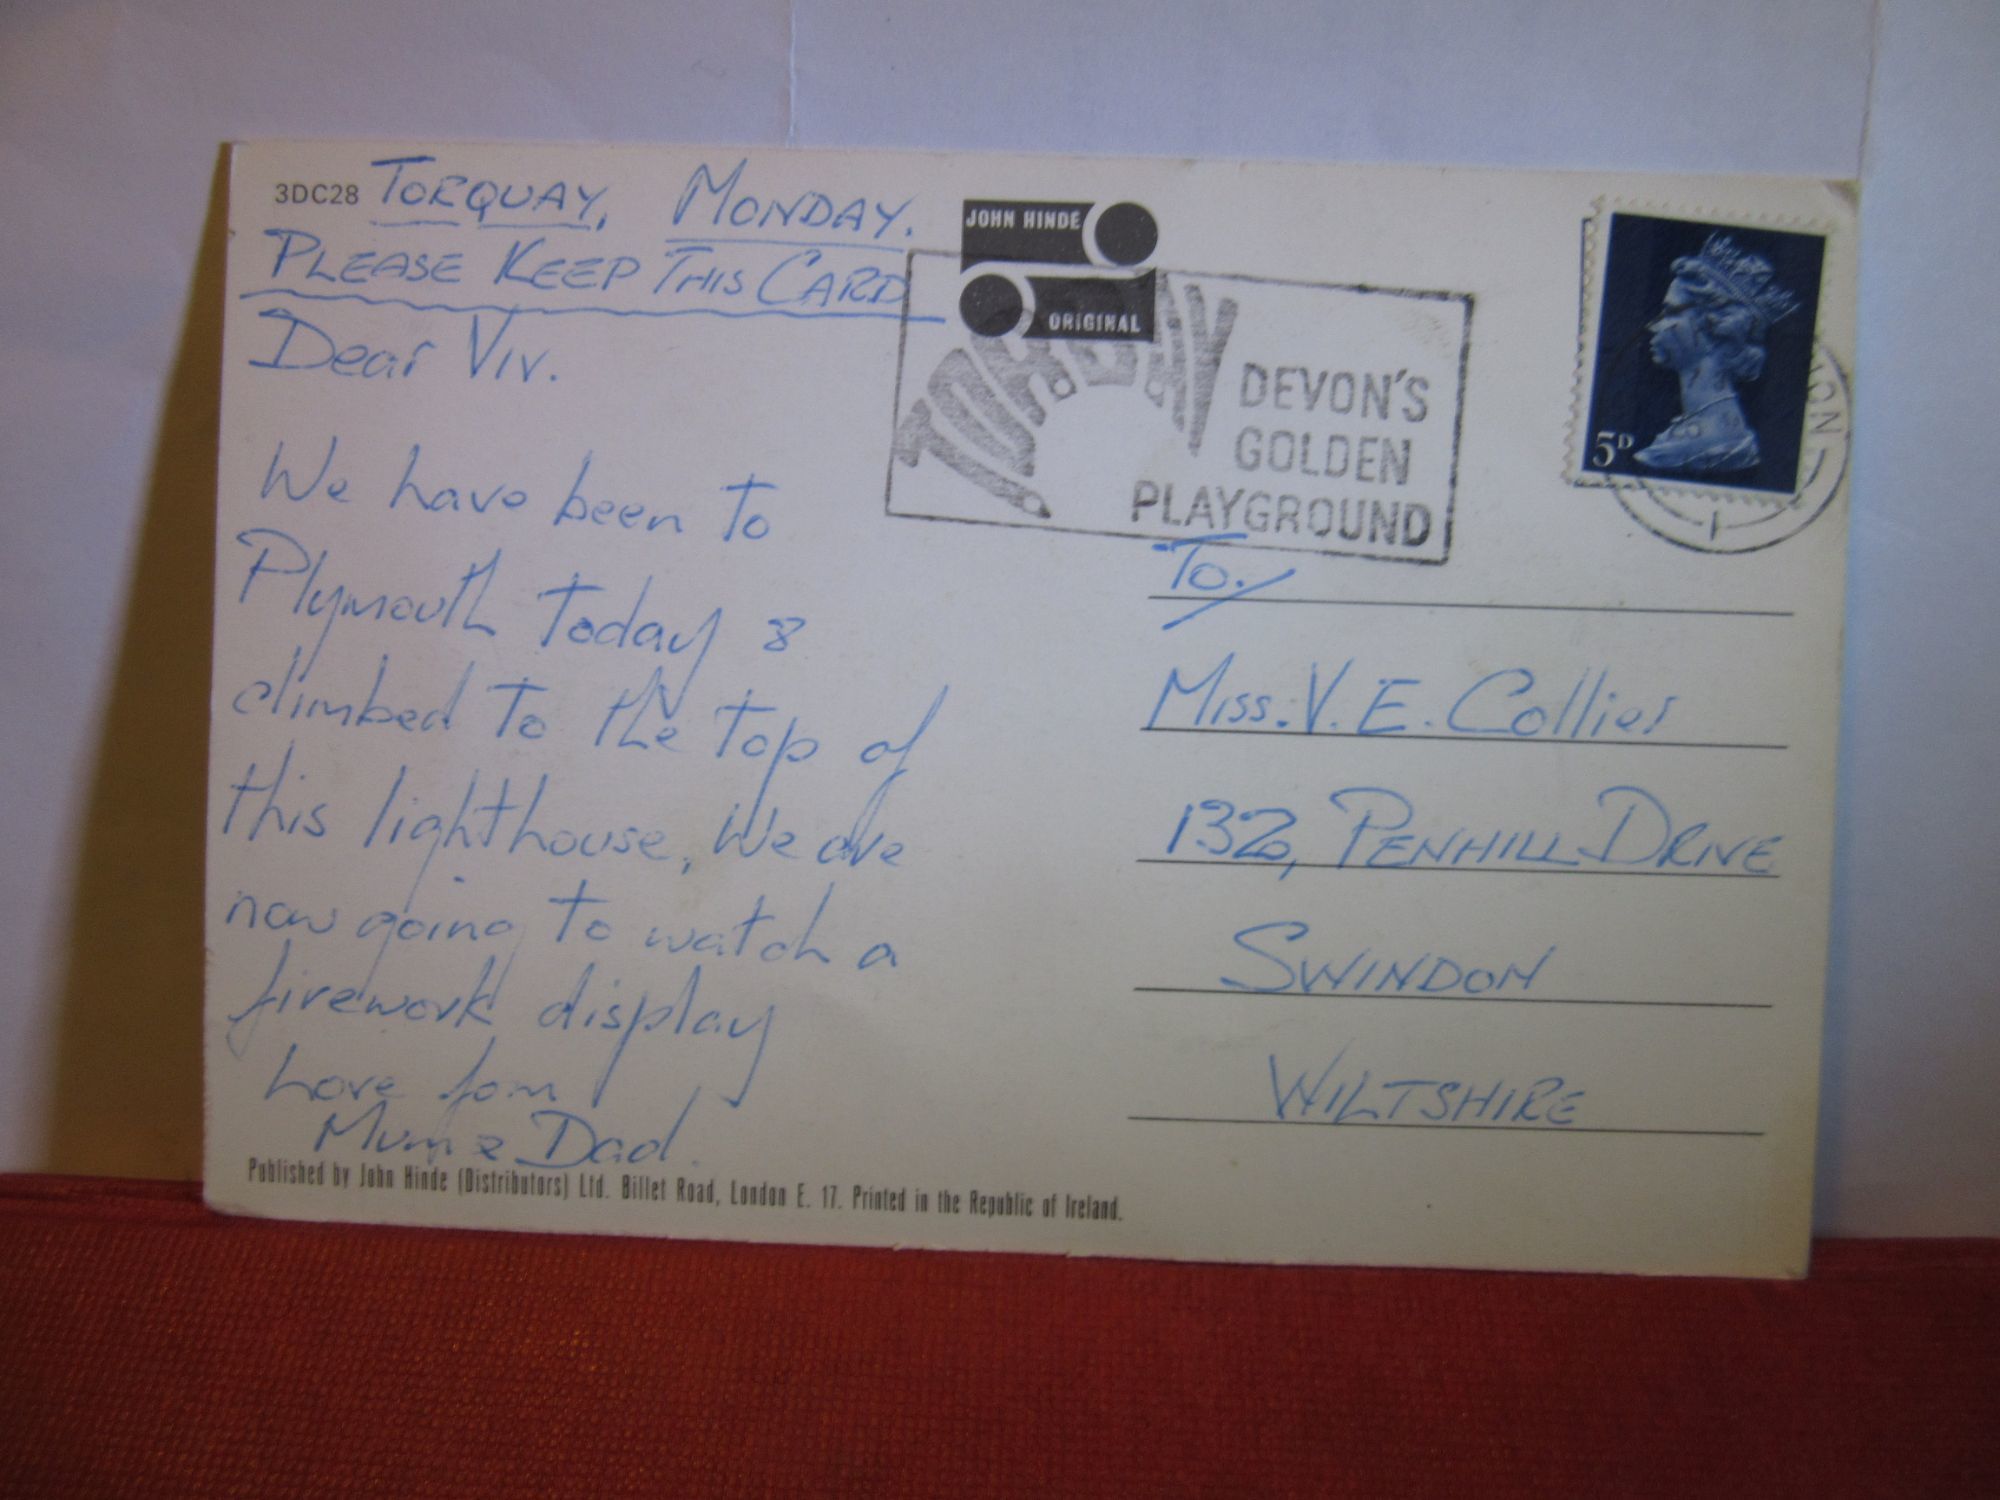 3DC28 TORQUAY, MONDAY.
PLEASE KEEP THIS CARD
Dear Viv.
We have been to
Plymouth today &
climbed to the top of
this lighthouse, We are
now going to watch a
firework display
Love fom
Mum & Dad.
Published by John Hinde (Distributors) Ltd. Billet Road, London E. 17. Printed in the Republic of Ireland.
JOHN HINDE
ORIGINAL
TORBAY
DEVON'S
GOLDEN
PLAYGROUND
5D
To./
Miss. V. E. Collier
132, PENHILL DRIVE
SWINDON
WILTSHIRE